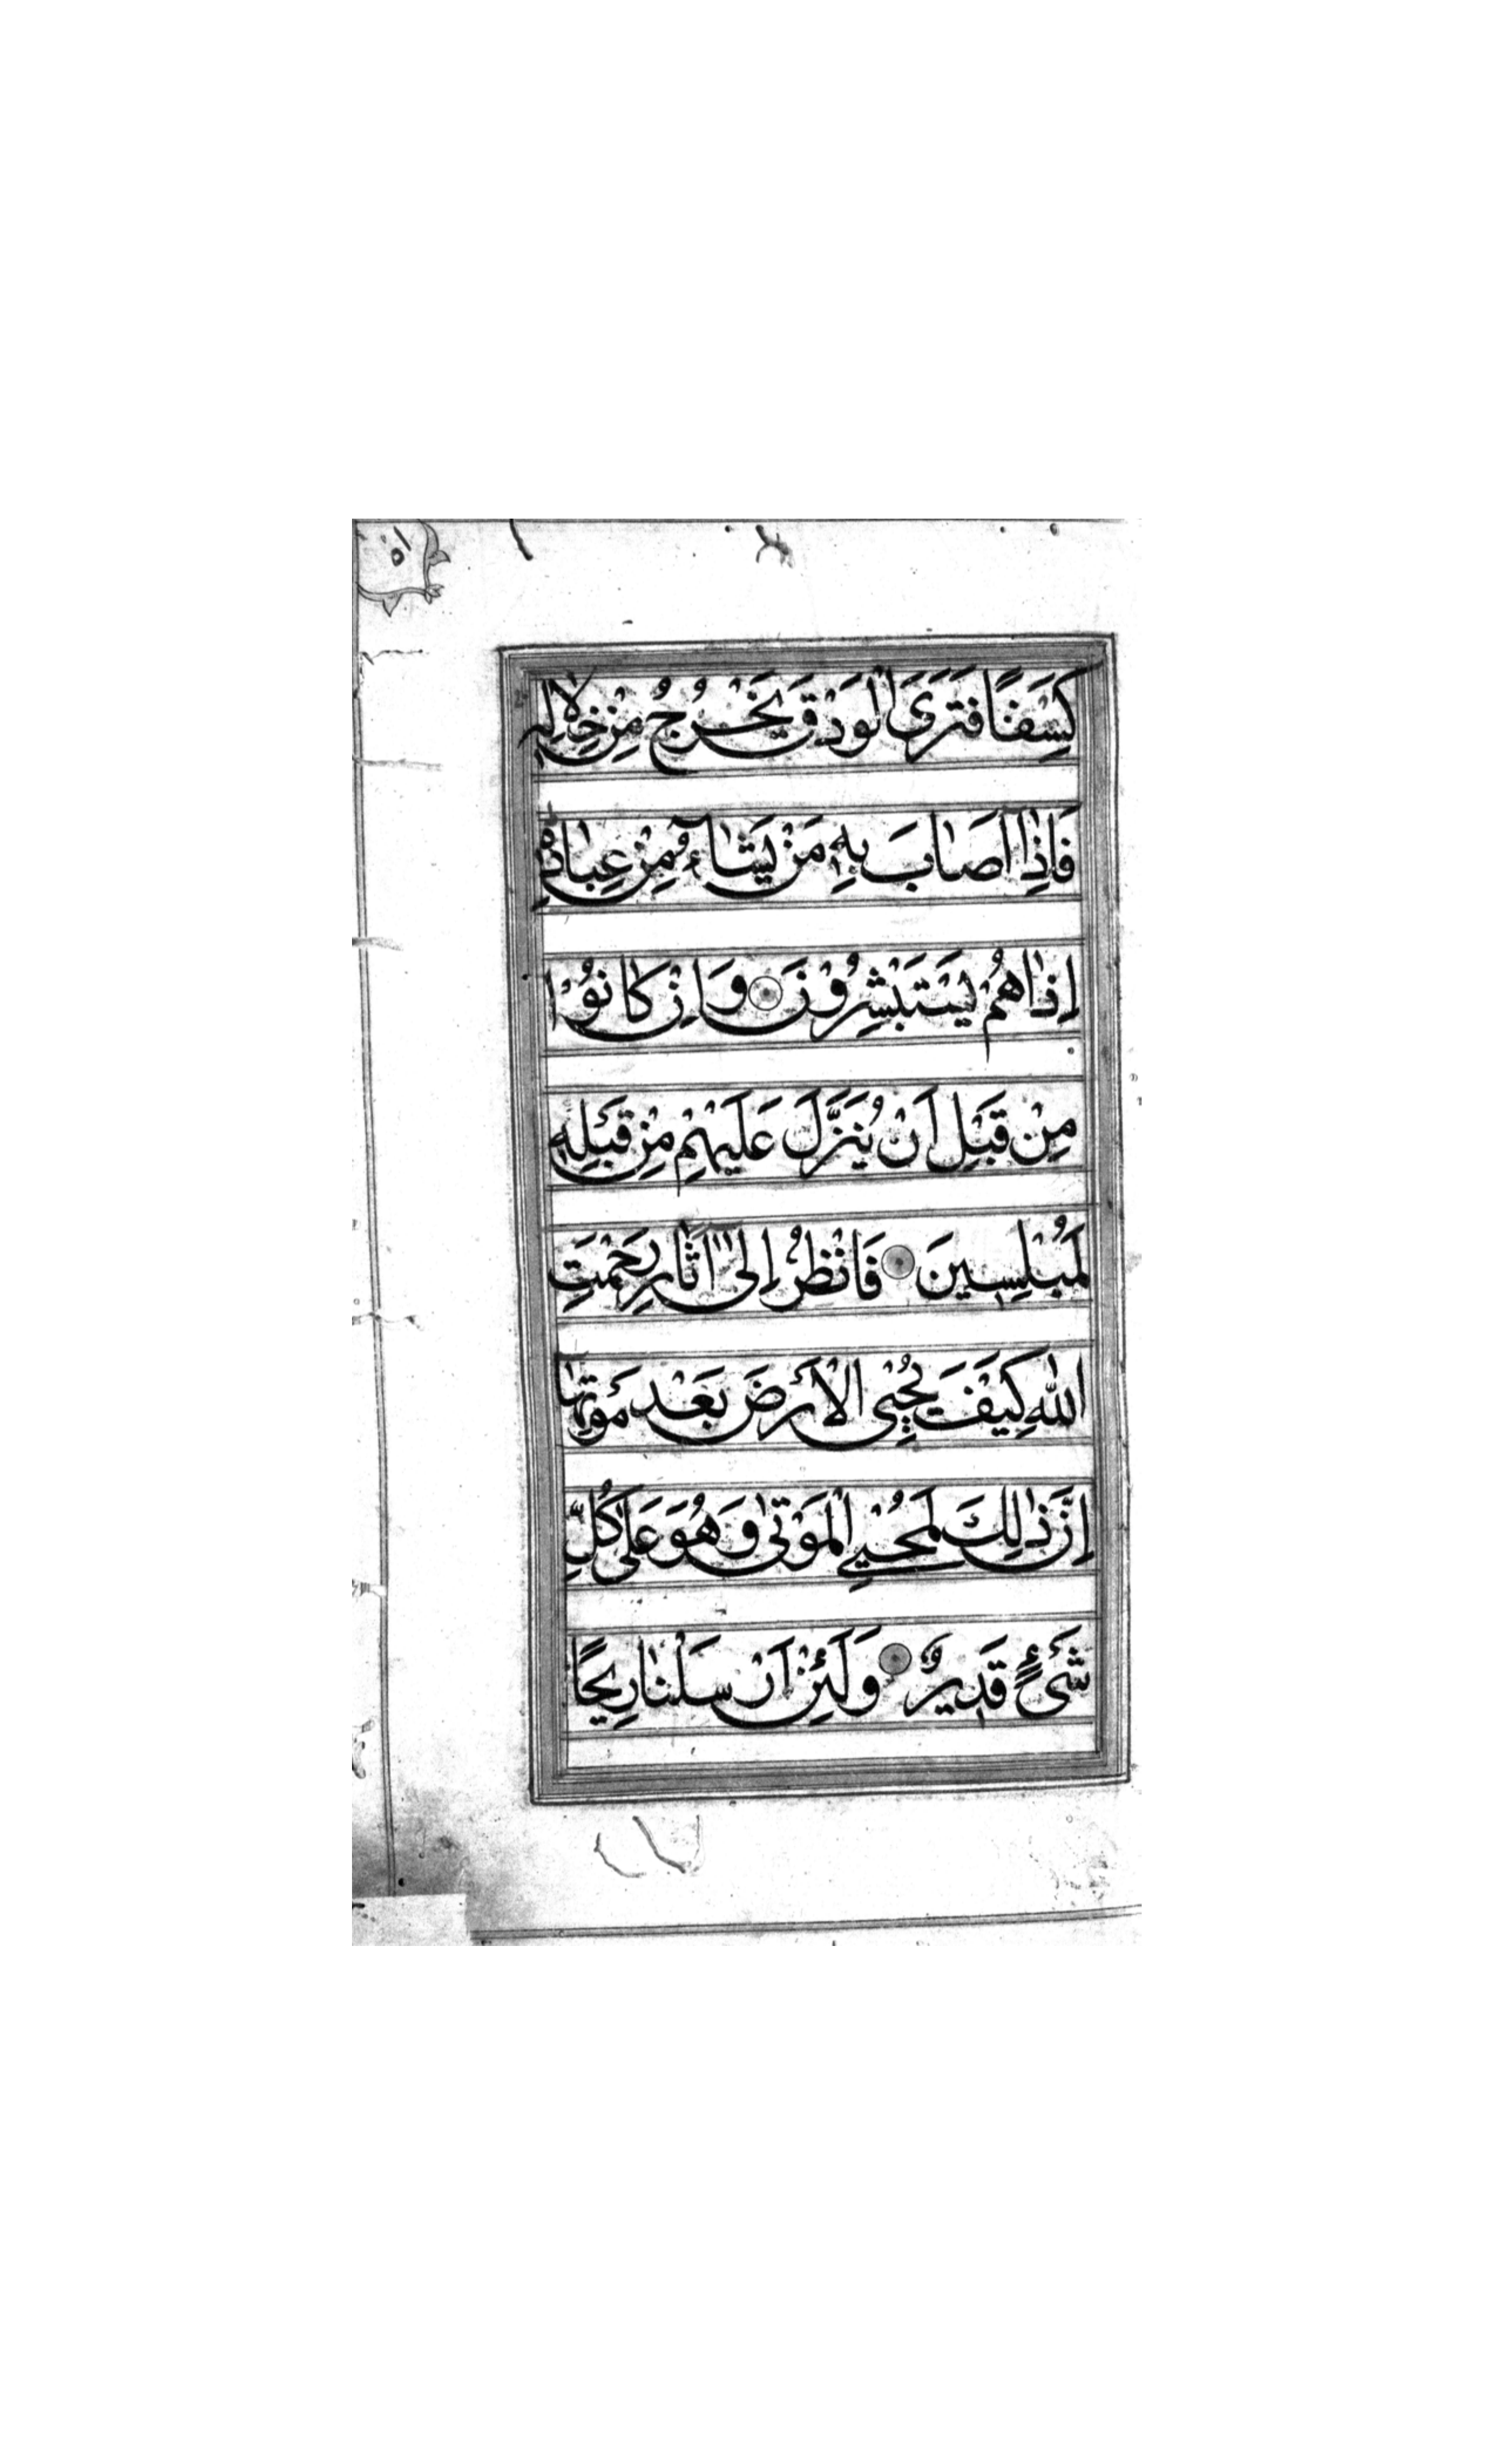 ٥١
كِسَفًا فَتَرَى الْوَدْقَ يَخْرُجُ مِنْ خِلَالِهِ
فَاِذَا اَصَابَ بِهِ مَنْ يَشَاءُ مِنْ عِبَادِهِ
اِذَا هُمْ يَسْتَبْشِرُوْنَ وَاِنْ كَانُوْا
مِنْ قَبْلِ اَنْ يُنَزَّلَ عَلَيْهِمْ مِنْ قَبْلِهِ
لَمُبْلِسِينَ فَانْظُرْ اِلَى آثَارِ رَحْمَتِ
اللهِ كَيْفَ يُحْيِي الْاَرْضَ بَعْدَ مَوْتِهَا
اِنَّ ذٰلِكَ لَمُحْيِي الْمَوْتٰى وَهُوَ عَلٰى كُلِّ
شَيْءٍ قَدِيرٌ وَلَئِنْ اَرْسَلْنَا رِيحًا